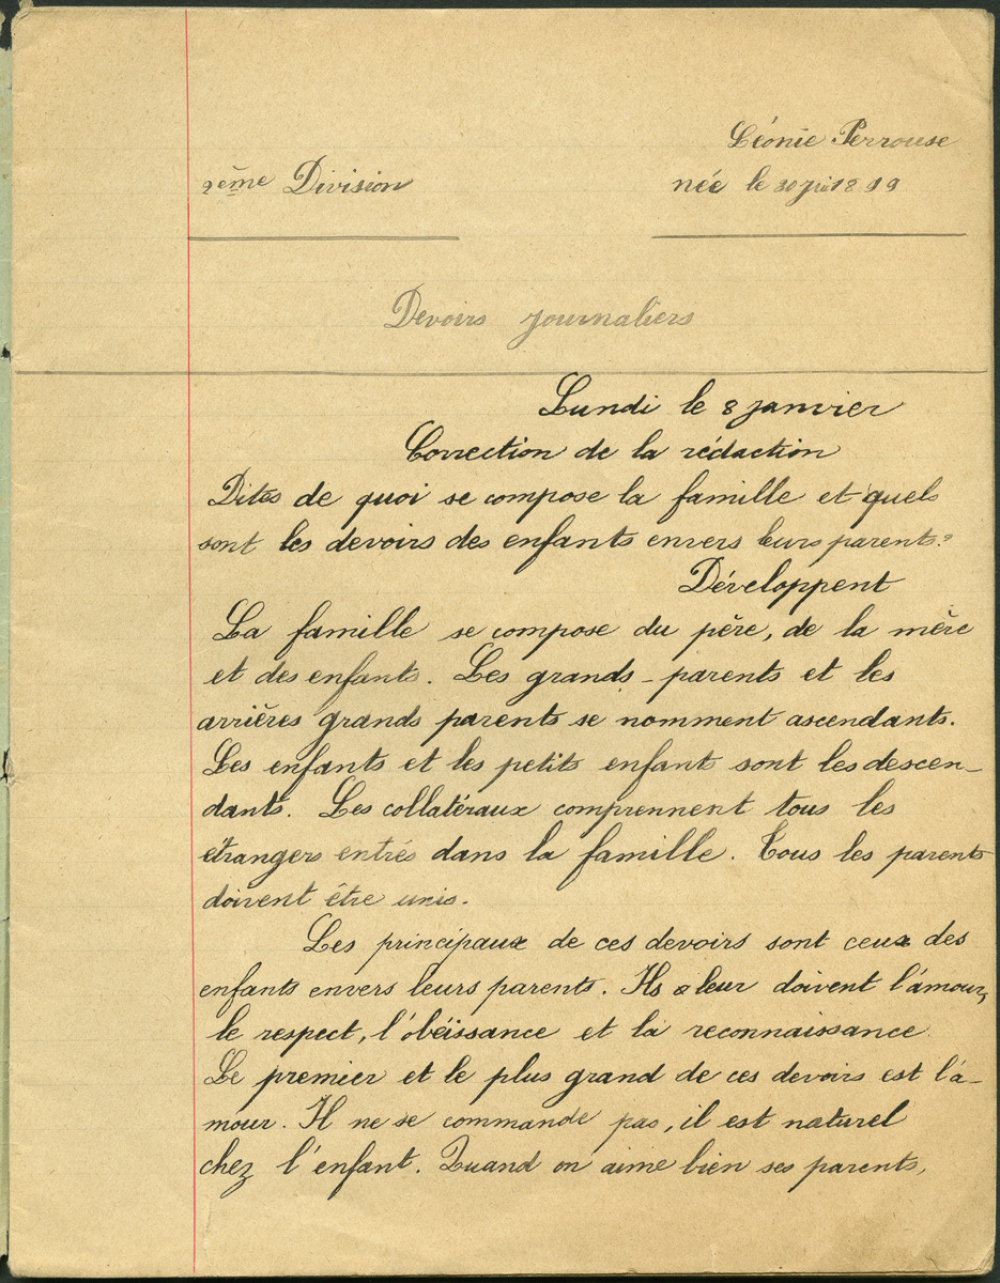 Léonie Perrouse
2ème Division
née le 30 1899
Devoirs journaliers
Lundi le 8 janvier
Correction de la rédaction
Dites de quoi se compose la famille et quels
sont les devoirs des enfants envers leurs parents?
Développent
La famille se compose du père, de la mère
et des enfants. Les grands-parents et les
arrières grands parents se nomment ascendants.
Les enfants et les petits enfants sont les descen-
dants. Les collatéraux comprennent tous les
étrangers entrés dans la famille. Tous les parents
doivent être unis.
Les principaux de ces devoirs sont ceux des
enfants envers leurs parents. Ils leur doivent l'amour,
le respect, l'obéissance et la reconnaissance.
Le premier et le plus grand de ces devoirs est l'a-
mour. Il ne se commande pas, il est naturel
chez l'enfant. Quand on aime bien ses parents,